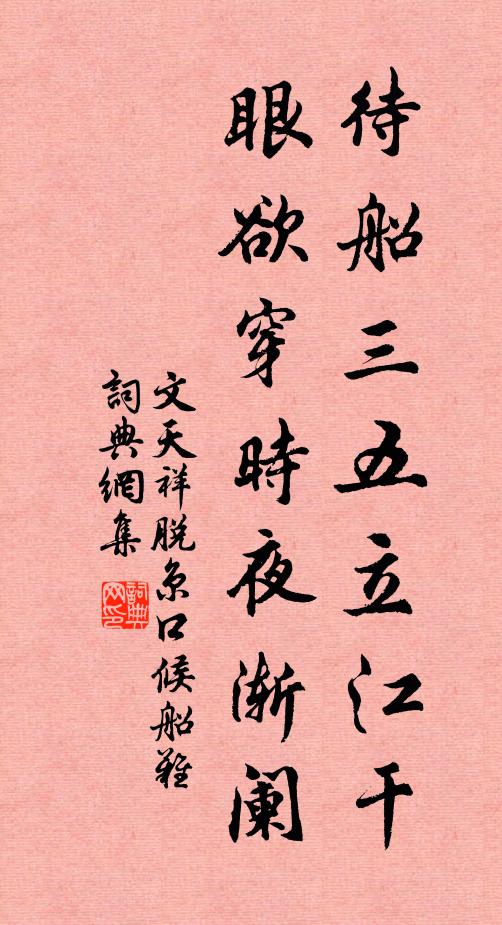 待船三五立江干
眼欲穿時夜渐阑
文天祥脱京口候船難
詞典網集
詞典网印